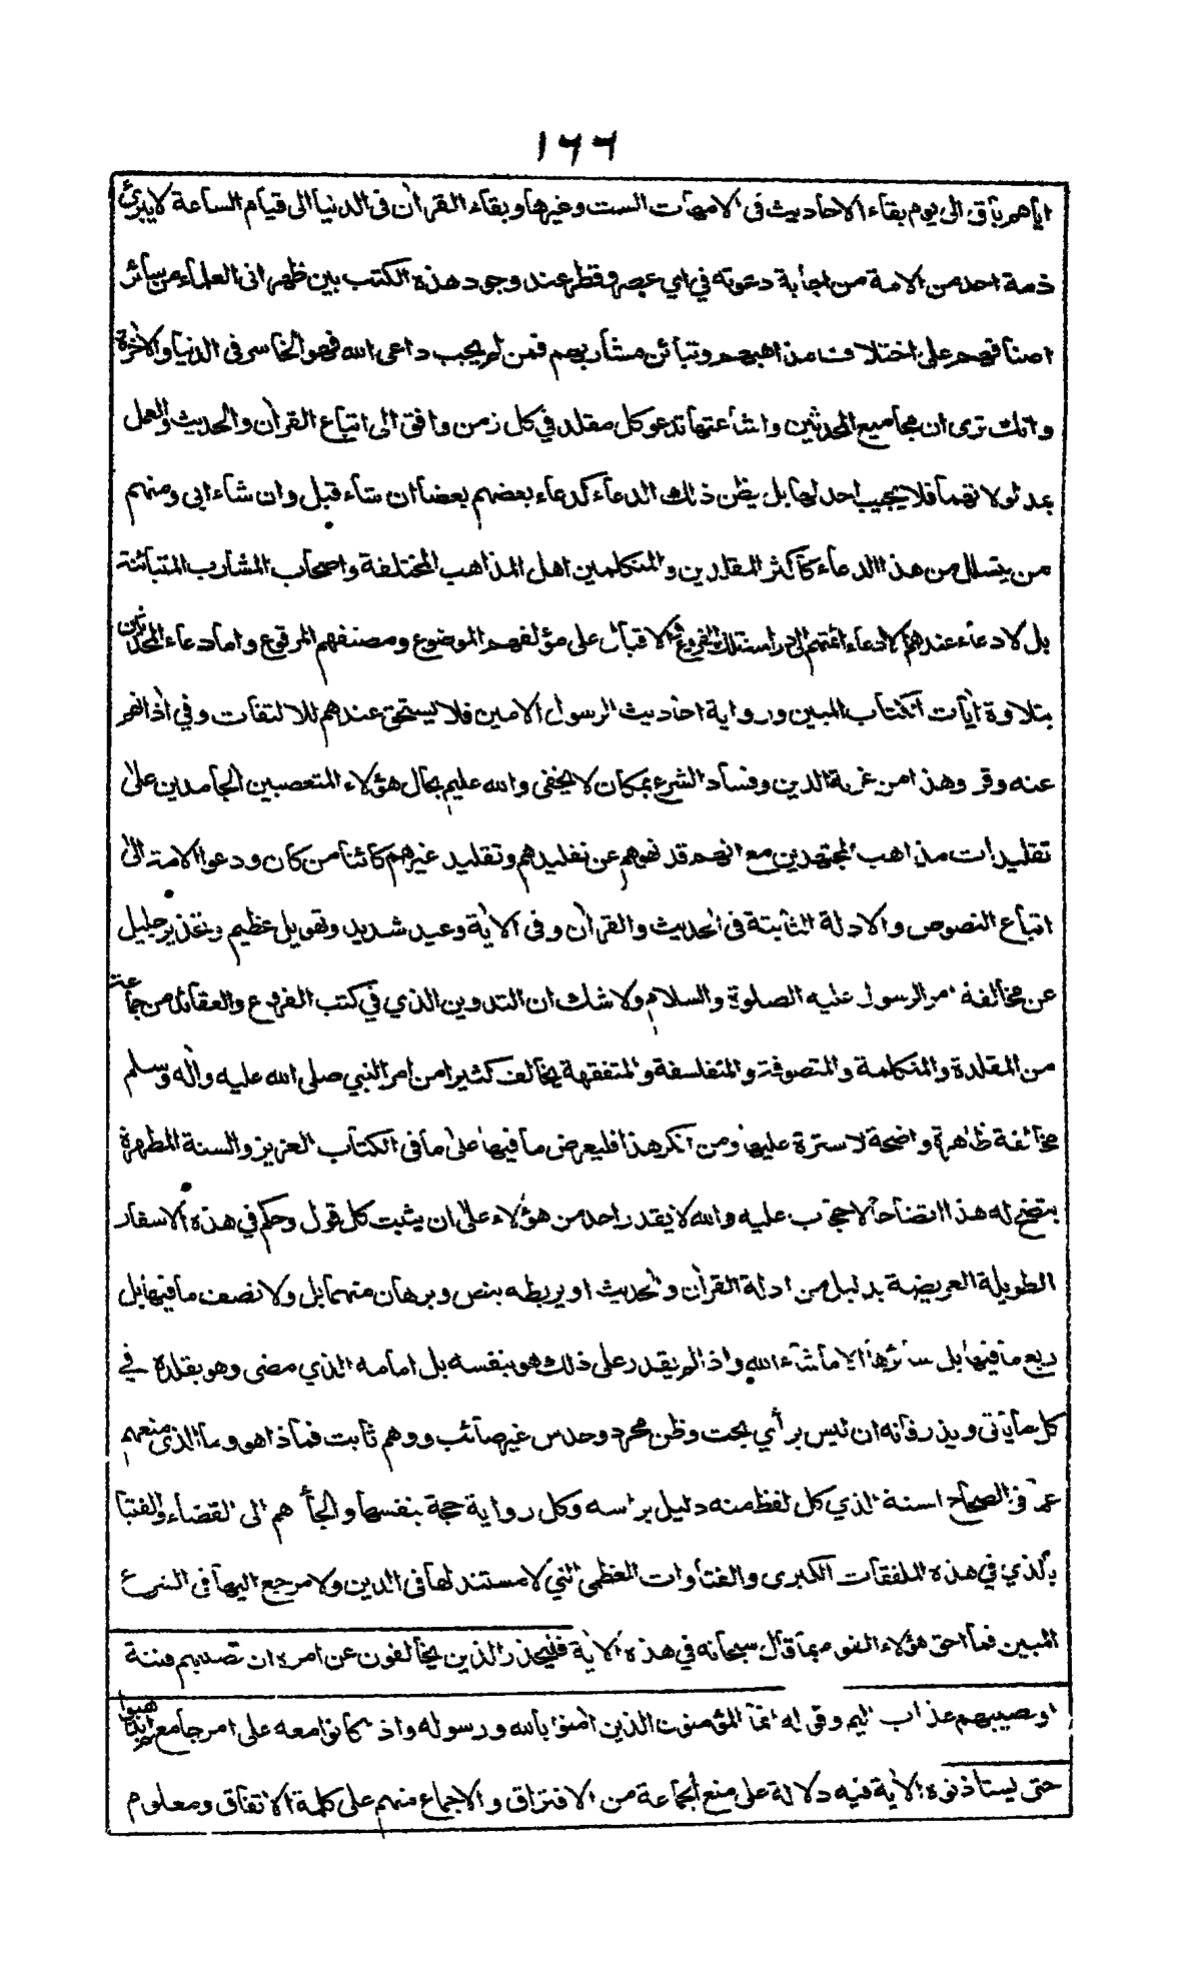 ١٦٦
اياهم باق الى يوم بقاء الاحاديث فى الامهات الست وغيرها وبقاء القرأن فى الدنيا الى قيام الساعة لا يبرئ
ذمة احد من الامة من اجابة دعوته في اي عصر وقطر عند وجود هذه الكتب بين ظهرانى العلماء من سائر
اصنافهم على اختلاف مذاهبهم وتبائن مشاربهم فمن لم يجب داعى الله فهو الخاسر فى الدنيا والأخرة
وانك ترى ان مجاميع المحدثين واشاعتها تدعو كل مقلد في كل زمن وافق الى اتباع القرأن والحديث والعمل
بمدلولاتهما فلا يجيب احد لها بل يظن ذلك الدعاء كدعاء بعضهم بعضا ان شاء قبل وان شاء ابى ومنهم
من يتسلل من هذا الدعاء كأكثر المقلدين والمتكلمين اهل المذاهب المختلفة واصحاب المشارب المتبائنة
بل لا دعاء عندهم الا دعاء ائمتهم الى دراسة تلك الفروع والاقبال على مؤلفهم الموضوع ومصنفهم المرقوع واما دعاء المحدثين
بتلاوة أيات الكتاب المبين ورواية احاديث الرسول الامين فلا يستحق عندهم للالتفات وفي أذانهم
عنه وقر وهذا من غربة الدين وفساد الشرع بمكان لا يخفى والله عليم بحال هؤلاء المتعصبين الجامدين على
تقليدات مذاهب المجتهدين مع انهم قد نهوهم عن تقليدهم وتقليد غيرهم كائنا من كان ودعوا الامة الى
اتباع النصوص والادلة الثابتة فى الحديث والقرأن وفى الأية وعيد شديد وتهويل عظيم وتحذير جليل
عن مخالفة امر الرسول عليه الصلوة والسلام ولا شك ان التدوين الذي في كتب الفروع والعقائد من جماعة
من المقلدة والمتكلمة والمتصوفة والمتفلسفة والمتفقهة يخالف كثيرا من امر النبي صلى الله عليه وأله وسلم
مخالفة ظاهرة واضحة لا سترة عليها ومن انكر هذا فليعرض ما فيها على ما فى الكتاب العزيز والسنة المطهرة
يتضح له هذا اتضاحا لا حجاب عليه والله لا يقدر احد من هؤلاء على ان يثبت كل قول وحكم في هذه الاسفار
الطويلة العريضة بدليل من ادلة القرأن والحديث او يربطه بنص وبرهان منهما بل ولا نصف ما فيها بل
ربع ما فيها بل سائرها الا ما شاء الله واذا لم يقدر على ذلك هو بنفسه بل امامه الذي مضى وهو يقلده في
كل ما يأتى ويذر فانه ان ليس برأي بحت وظن مجرد وحدس غير صائب ووهم ثابت فماذا هو وما الذى منعهم
عما فى الصحاح السنة الذي كل لفظ منه دليل برأسه وكل رواية حجة بنفسها والجأهم الى القضاء والفتيا
بالذي في هذه الملفقات الكبرى والفتاوات العظمى التي لا مستند لها فى الدين ولا مرجع اليها فى الشرع
المبين فما احق هؤلاء القوم بما قال سبحانه في هذه الأية فليحذر الذين يخالفون عن امره ان تصيبهم فتنة
او يصيبهم عذاب اليم وقوله انما المؤمنون الذين أمنوا بالله ورسوله واذا كانوا معه على امر جامع لم يذهبوا
حتى يستأذنوه الأية فيه دلالة على منع الجماعة من الافتراق والاجماع منهم على كلمة الاتفاق ومعلوم